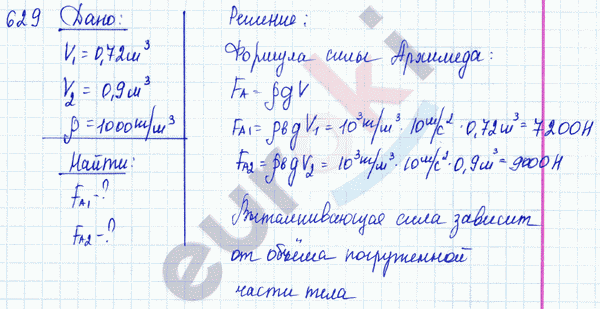 629 Дано:
V₁ = 0,72 м³
V₂ = 0,9 м³
ρ = 1000 кг/м³
Найти:
F_A1 - ?
F_A2 - ?
Решение:
Формула силы Архимеда:
F_A = ρgV
F_A1 = ρвgV₁ = 10³ кг/м³ · 10 м/с² · 0,72 м³ = 7200 Н
F_A2 = ρвgV₂ = 10³ кг/м³ · 10 м/с² · 0,9 м³ = 9000 Н
Выталкивающая сила зависит
от объёма погруженной
части тела
euroki